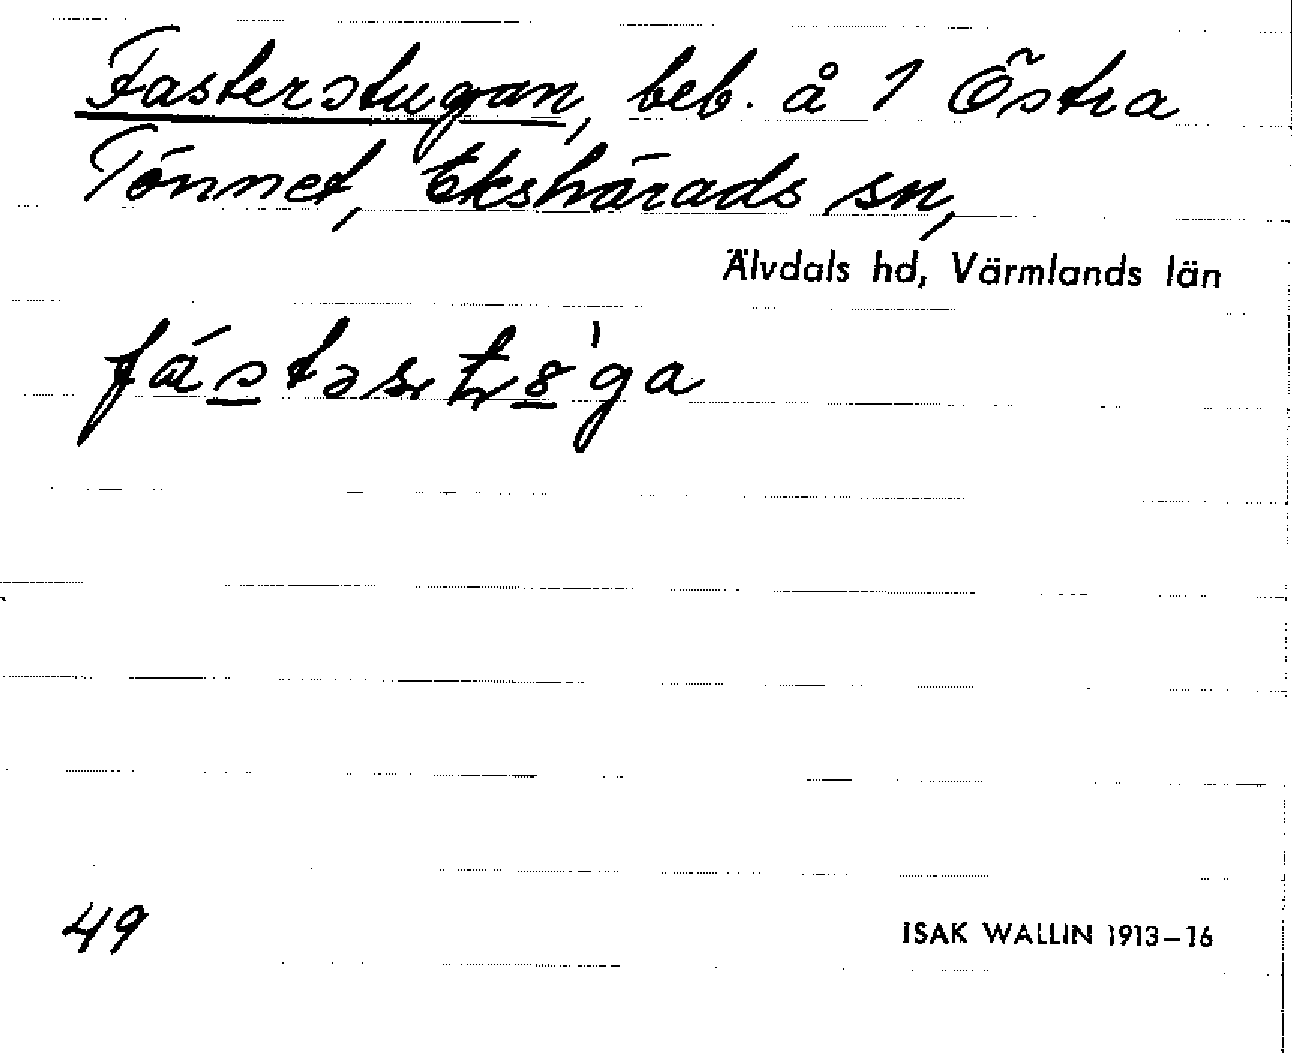 Fasterstugan, beb. å 1 Östra
Tönnet, Ekshärads sn,
Älvdals hd, Värmlands län
49
ISAK WALLIN 1913–16